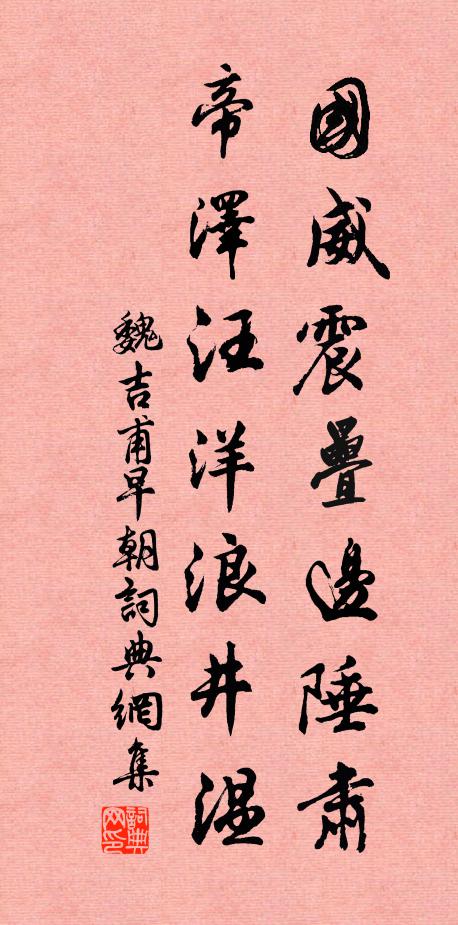 國威震疊邊陲肅
帝澤汪洋浪井温
魏吉甫早朝詞典網集
詞典网印